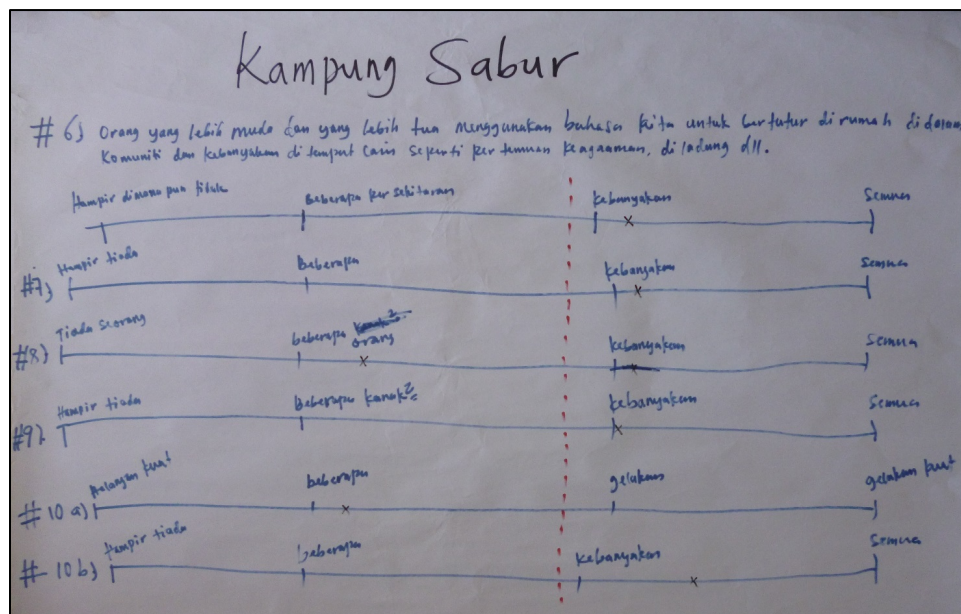 Kampung Sabur
# 6) Orang yang lebih muda dan yang lebih tua menggunakan bahasa kita untuk bertutur di rumah didalam
Komuniti dan kebanyakan di tempat lain seperti pertemuan keagamaan, di ladang dll.
Hampir dimana pun tiduk Beberapa persekitaran kebanyakan Semua
#7) Hampir tiada Beberapa kebanyakan Semua
#8) Tiada seorang beberapa orang kebanyakan Semua
#9) Hampir tiada Beberapa kanak2 kebanyakan Semua
#10 a) Halangan kuat beberapa galakan galakan kuat
#10 b) Hampir tiada beberapa kebanyakan Semua